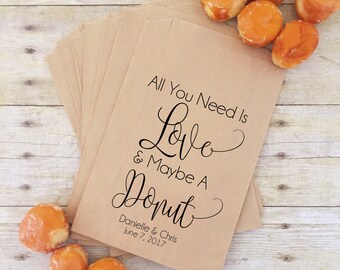 All You Need Is
Love
& Maybe A
Donut
Danielle & Chris
June 7, 2017